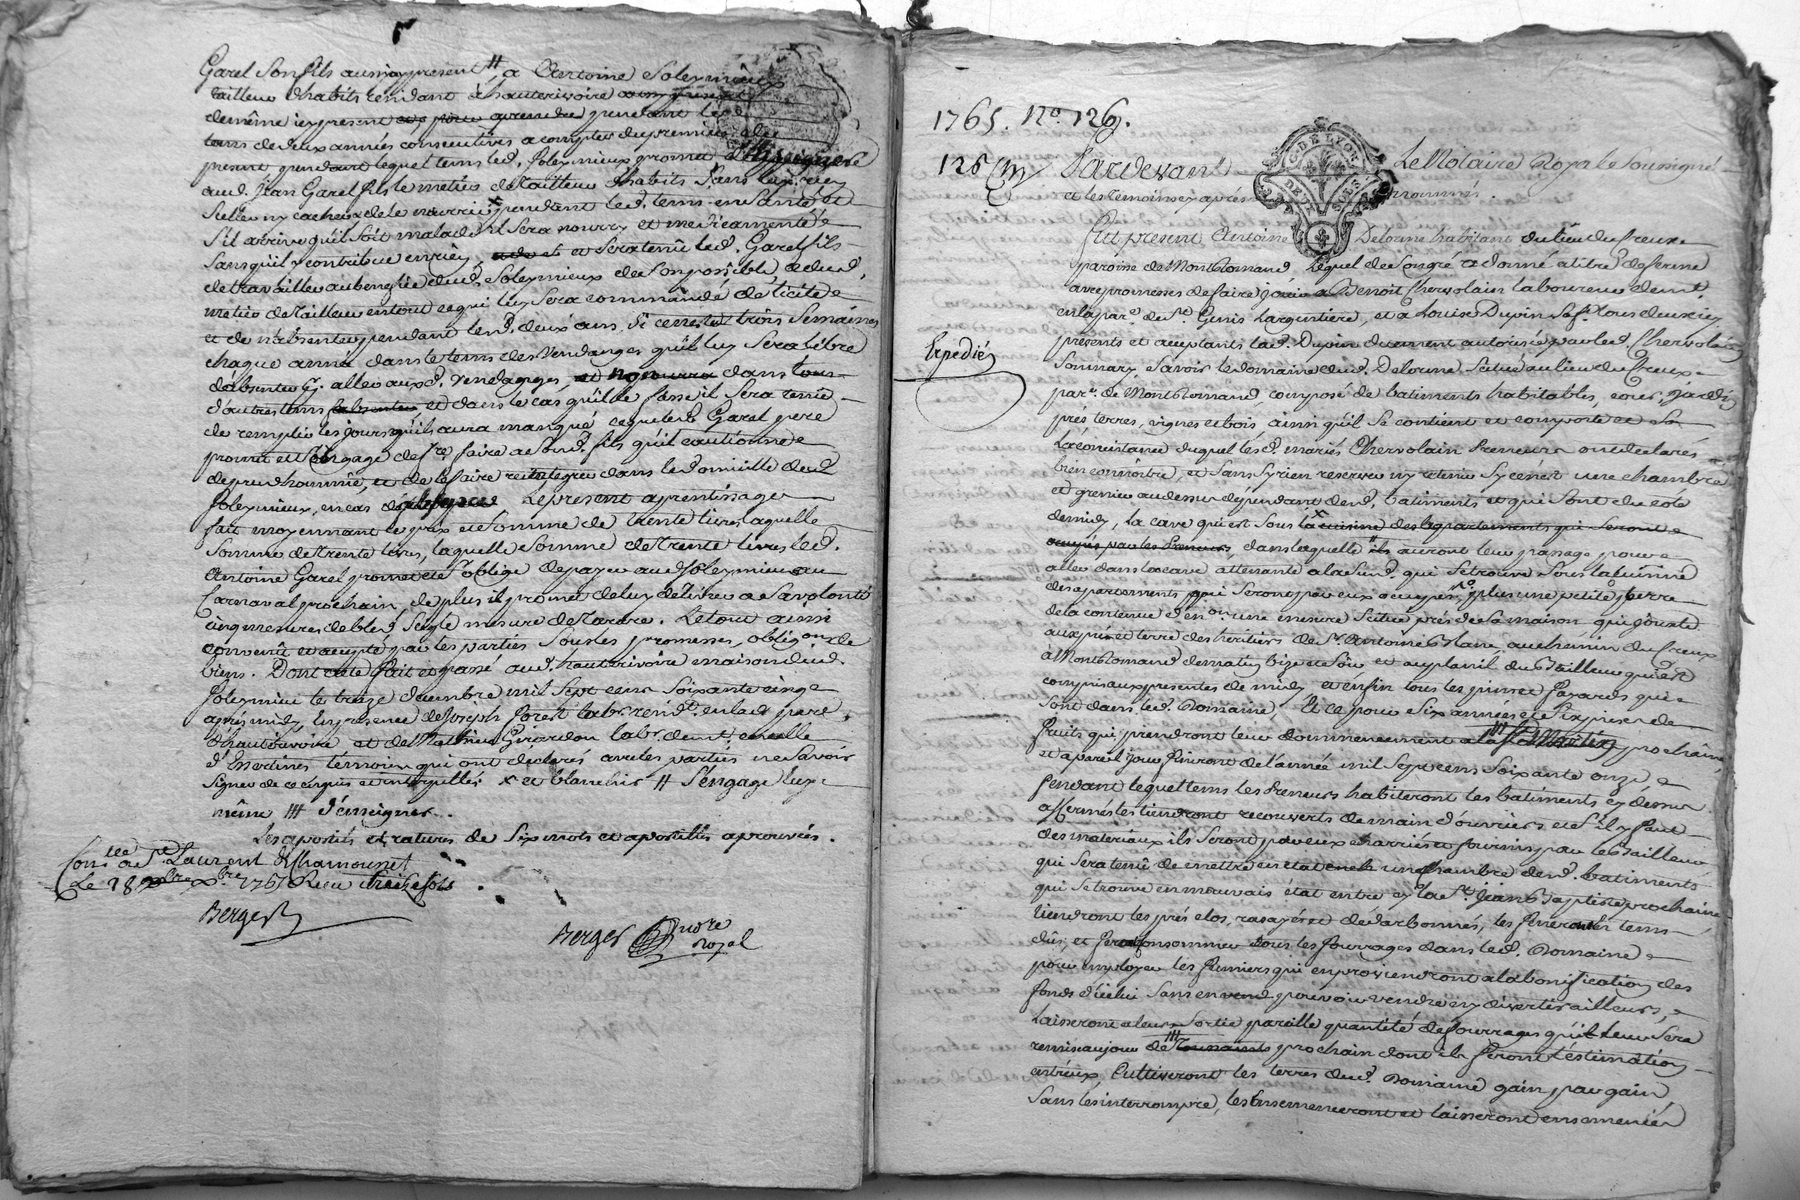 Garel Son fils aussy present # a Antoine Soleymieux
tailleur d'habits residant à hauterivoire
de même icy present pendant le d.
tems de deux années consecutives a compter du premier
present pendant lequel tems led. Soleymieux promet d'enseigner
aud. Jean Garel fils le metier de tailleur d'habits Sans luy rien
Celler ny cacher & de le nourrir x pendant led. tems en Santé et
S'il arrive qu'il soit malade il Sera nourry et medicamenté
Sans qu'il y contribue en rien, et Sera tenu led. Garel fils
de travailler au benefice dud. Soleymieux de Son possible de lud.
metier de tailleur en tout ce qui luy Sera commandé de licite
et de n'absenter pendant lesd. deux ans, Si ce n'est trois Semaines
chaque année dans le tems des Vendanges qu'il luy Sera libre
d'absenter p. aller aux d. Vendanges, dans tous
d'autres tems et dans le cas qu'il le fasse il Sera tenu
de remplir les jours qu'il aura manqué ce que led. Garel pere
promet et S'engage de f.re faire a Sond. fils qu'il cautionne
de prud'hommie, et de le faire reintegrer dans le Domicille dud.
Soleymieux, en cas d'absence Le present aprentissage
fait moyennant le prix et Somme de trente livres laquelle
Somme de trente livres, laquelle Somme de trente livres led.
Antoine Garel promet et S'oblige de payer aud. Soleymieux au
Carnaval prochain, de plus il promet de luy delivrer a Sa volonté
cinq mesures de bled Seigle mesure de Tarare. Le tout ainsi
convenû et accepté par les parties Sous les promesses, oblig.ons de
biens. Dont acte fait et passé aud. hauterivoire maison dud.
Soleymieu le treize decembre mil Sept cens Soixante cinq
après midy, en presence de Joseph Forest lab.r resid.t en lad. par.e
d'hauterivoire et de Mathieu Girardon lab.r dem.t en celle
d'Essertines témoins qui ont declarés avec les parties ne Savoir
Signer de ce enquis et interpellés x et blanchir # S'engage luy
même ### d'enseigner.
Les apostils et ratures de Six mots et apostilles aprouvées.
Con.lee a S.t Laurent de Chamousset
Le 18 x.bre 1765 Recu treize sols
Berger
Berger no.re
Royal
1765. N.o 126.
125 Pardevant Le Notaire Royal Soussigné
et les temoins cy après nommés.
G. DE LYON
DEUX SOLS
Fut present Antoine Delorme habitant du lieu du Creux
paroisse de Montromand, lequel de Son gré a donné a titre de ferme
avec promesses de faire jouir a Benoit Chervolain laboureur dem.t
en la par.e de S.t Genis L'argentiere, et a Louise Dupin Sa f.e tous deux icy
présents et acceptants lad. Dupin duement autorisée par led. Chervolain
Expedié
Son mary, Savoir le domaine dud. Delorme Scitué au lieu du Creux
par.e de Montromand composé de batiments habitables, cour, jardin
prés terres, vignes et bois ainsi qu'il Se contient et comporte et Sa
La consistance duquel lesd. mariés Chervolain preneurs ont declarés
bien connoitre, et Sans S'y rien reserver ny retenir Sy ce n'est une chambre
et grenier au dessus dependant desd. batiments et qui Sont du coté
de midy, la cave qui est Sous la x cuisine des departements qui Seront
occupés par les preneurs, dans laquelle ils auront leur passage pour
aller dans la cave attenante a la Susd. qui Se trouve Sous la cuisine
des apartements qui Seront par eux occupés. plus une petite terre
de la contenue d'en.on une mesure Scitué près de la maison qui jouxte
aux prés et terre des heritiers de S.r Antoine Blanc, au chemin du Creux
à Montromand de matin, bize et soir et au plan dud. Bailleur qui est
compris aux presentes de midy, et enfin tous les pins et fayards qui
Sont dans led. Domaine, Et ce pour Six années et Six prises de
fruits qui prendront leur commencement a la S.t Martin prochaine,
et a pareil jour finiront de l'année mil Sept cens Soixante onze
pendant lequel tems les Preneurs habiteront les batiments cy dessus
affermés les tiendront recouverts de main d'ouvriers et S'il y faut
des materiaux ils Seront par eux charriés et fournis par led. Bailleur
qui Sera tenû de mettre en état une Chambre desd. batiments
qui Se trouve en mauvais état entre cy et la S.t Jean Baptiste prochaine,
tiendront les prés clos, rasayés et Dedarbonnés, les fumeront en tems
dûs, et feront consommer tous les fourrages dans led. Domaine
pour employer les fumiers qui en proviendront a la bonification des
fonds d'icelui Sans en pouvoir vendre ny divertir ailleurs,
Laisseront a leur Sortie pareille quantité de fourrages qu'il leur Sera
remis au jour de ### Toussaints prochain dont ils feront l'éstimation
entr'eux Cultiveront les terres dud. Domaine gain par gain,
Sans les interrompre, les Ensemenceront et laisseront ensemencées